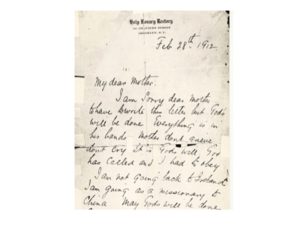 Holy Rosary Rectory
Feb 28th 1912
My dear Mother.
I am sorry dear Mother
to have to write this letter but God's
will be done. Everything is in
his hands. Mother dont grieve
dont cry. It is God's will. God
has called and I had to obey
I am not going back to
I am going as a missionary to
China May God's will be done